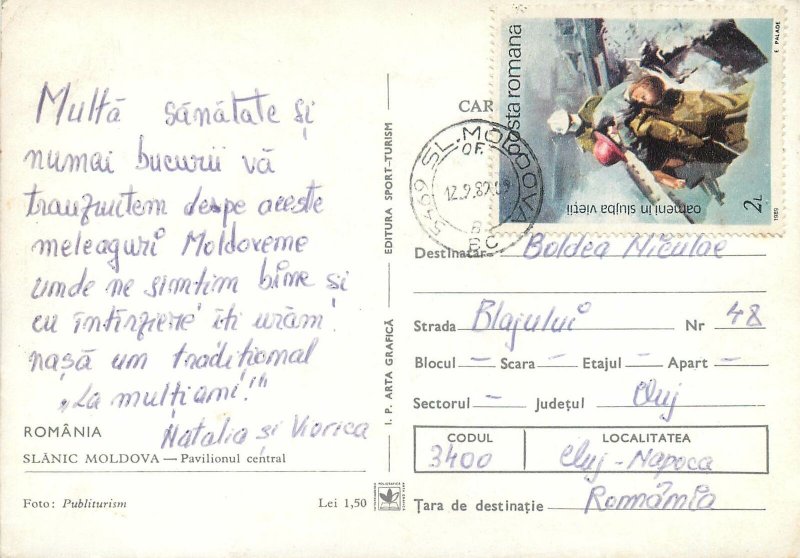 Multă sănătate și
numai bucurii vă
tranzmitem despe aceste
meleaguri Moldovene
unde ne simtim bine si
cu întîrziere iti urăm
nașă un tradițional
„La mulți ani!"
Natalia si Viorica
ROMÂNIA
SLĂNIC MOLDOVA — Pavilionul central
Foto: Publiturism
Lei 1,50
I. P. ARTA GRAFICĂ
EDITURA SPORT-TURISM
CAR
5469 SL. MOLDOVA
OF.
12.9.89.09
B
BC
posta romana
oameni în slujba vieții
2L
1989
E PALADE
Destinatar Boldea Niculae
Strada Blajului Nr 48
Blocul – Scara – Etajul – Apart –
Sectorul – Județul Cluj
CODUL
3400
LOCALITATEA
Cluj-Napoca
Țara de destinație România